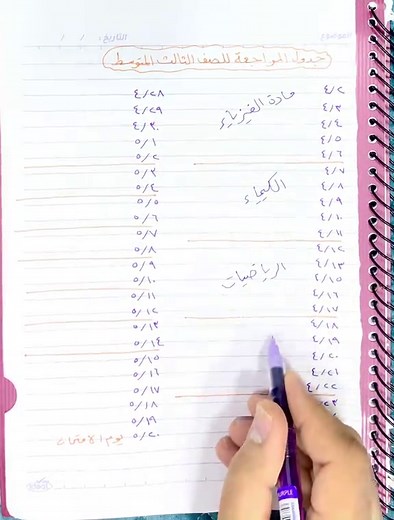 الموضوع
التاريخ: / /
جدول المراجعة للصف الثالث المتوسط
٤/٢
مادة الفيزياء
٤/٣
٤/٤
٤/٥
٤/٦
٤/٧
٤/٨
الكيمياء
٤/٩
٤/١٠
٤/١١
٤/١٢
٤/١٣
الرياضيات
٤/١٥
٤/١٦
٤/١٧
٤/١٨
٤/١٩
٤/٢٠
٤/٢١
٤/٢٢
٤/٢٨
٤/٢٩
٤/٣٠
٥/١
٥/٢
٥/٣
٥/٤
٥/٥
٥/٦
٥/٧
٥/٨
٥/٩
٥/١٠
٥/١١
٥/١٢
٥/١٣
٥/١٤
٥/١٥
٥/١٦
٥/١٧
٥/١٨
٥/١٩
٥/٢٠ يوم الامتحان
PURPLE